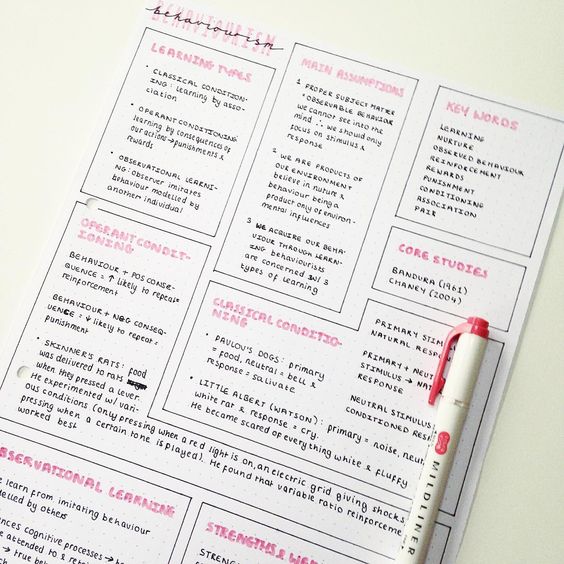 BEHAVIOURISM
behaviourism
LEARNING TYPES
• CLASSICAL CONDITION-
ING: learning by asso-
ciation
• OPERANT CONDITIONING
learning by consequences of
our actions → punishments &
rewards
• OBSERVATIONAL LEARNI-
NG: observer imitates
behaviour modelled by
another individual
MAIN ASSUMPTIONS
1 PROPER SUBJECT MATTER
* OBSERVABLE BEHAVIOUR
we cannot see into the
mind ∴ we should only
focus on stimulus &
response
2 WE ARE PRODUCTS OF
OUR ENVIRONMENT
believe in nature &
behaviour being a
product only of environ-
mental influences
3 WE ACQUIRE OUR BEHA-
VIOUR THROUGH LEARN-
ING behaviourists
are concerned w/ 3
types of learning
KEY WORDS
LEARNING
NURTURE
OBSERVED BEHAVIOUR
REINFORCEMENT
REWARDS
PUNISHMENT
CONDITIONING
ASSOCIATION
PAIR
CORE STUDIES
BANDURA (1961)
CHANEY (2004)
OPERANT CONDIT-
IONING
BEHAVIOUR + POS CONSE-
QUENCE = ↑ likely to repeat
reinforcement
BEHAVIOUR + NEG CONSEQ-
UENCE = ↓ likely to repeat =
punishment
• SKINNER'S RATS: food
was delivered to rats
when they pressed a lever.
He experimented w/ vari-
ous conditions (only pressing when a red light is on, an electric grid giving shocks,
pressing when a certain tone is played). He found that variable ratio reinforceme
worked best
CLASSICAL CONDITIO-
NING
• PAVLOV'S DOGS: primary
= food, neutral = bell &
response = salivate
• LITTLE ALBERT (WATSON): primary = noise, neut
white rat & response = cry.
He became scared of everything white & fluffy
PRIMARY STIM
NATURAL RESPON
PRIMARY + NEUT
STIMULUS → NA
RESPONSE
NEUTRAL STIMULUS
CONDITIONED RESP
MILDLINER
OBSERVATIONAL LEARNING
e learn from imitating behaviour
delled by others
ences cognitive processes → to
e attended to & reta
→ true beha
STRENGTHS & WE